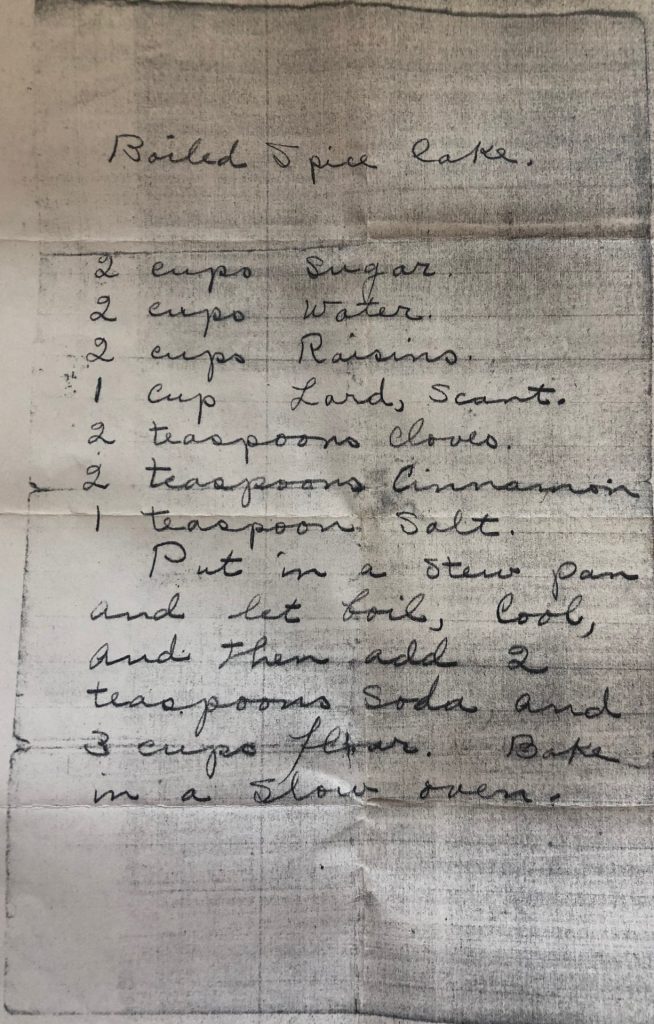 Boiled Spice Cake.
2 cups Sugar.
2 cups Water.
2 cups Raisins.
1 cup Lard, Scant.
2 teaspoons Cloves.
2 teaspoons Cinnamon
1 teaspoon Salt.
Put in a stew pan
and let boil, Cool,
and then add 2
teaspoons Soda and
3 cups flour. Bake
in a slow oven.